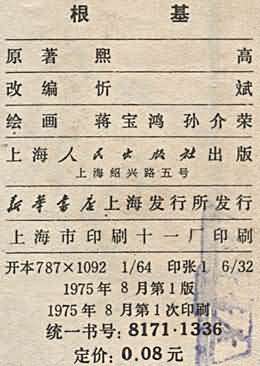 根基
原著 熙高
改编 忻斌
绘画 蒋宝鸿 孙介荣
上海人民出版社出版
上海绍兴路五号
新华书店上海发行所发行
上海市印刷十一厂印刷
开本787×1092 1/64 印张1 6/32
1975年8月第1版
1975年8月第1次印刷
统一书号：8171·1336
定价：0.08元